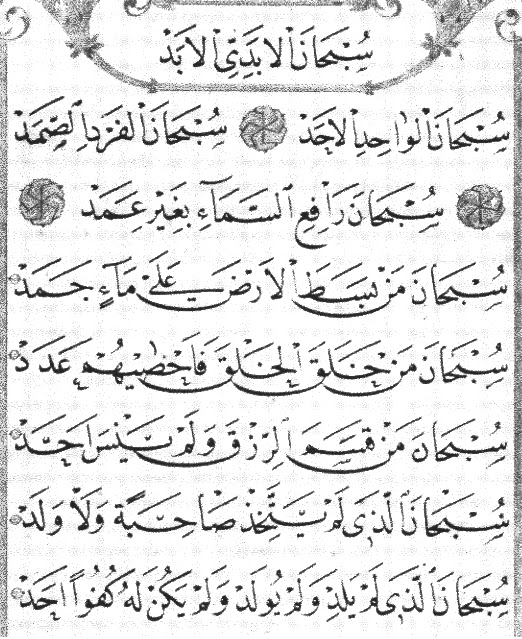 سُبْحَانَ الْاَبَدِيِّ الْاَبَدْ
سُبْحَانَ الْوَاحِدِ الْاَحَدْ سُبْحَانَ الْفَرْدِ الصَّمَدْ
سُبْحَانَ رَافِعِ السَّمَآءِ بِغَيْرِ عَمَدْ
سُبْحَانَ مَنْ بَسَطَ الْاَرْضَ عَلٰى مَآءٍ جَمَدْ
سُبْحَانَ مَنْ خَلَقَ الْخَلْقَ فَاَحْصٰيهُمْ عَدَدْ
سُبْحَانَ مَنْ قَسَمَ الرِّزْقَ وَلَمْ يَنْسَ اَحَدْ
سُبْحَانَ الَّذٖى لَمْ يَتَّخِذْ صَاحِبَةً وَلَا وَلَدْ
سُبْحَانَ الَّذٖى لَمْ يَلِدْ وَلَمْ يُولَدْ وَلَمْ يَكُنْ لَهُ كُفُوًا اَحَدْ